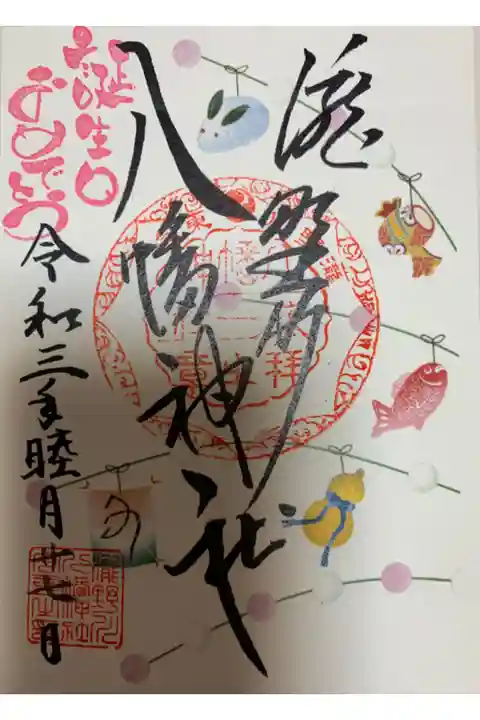 瀧野川
八幡神社
お誕生日
おめでとう
令和三年睦月廿七日
奉拝